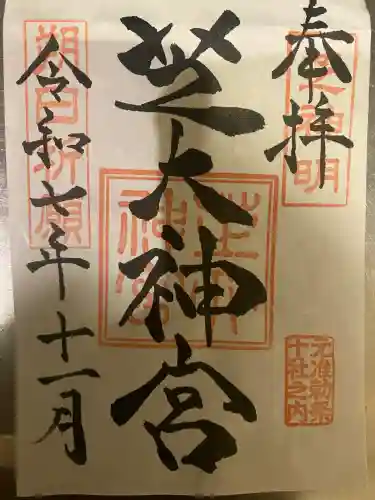 奉拝
芝大神宮
令和七年十一月
朔日祈願
元准勅祭
十社之内